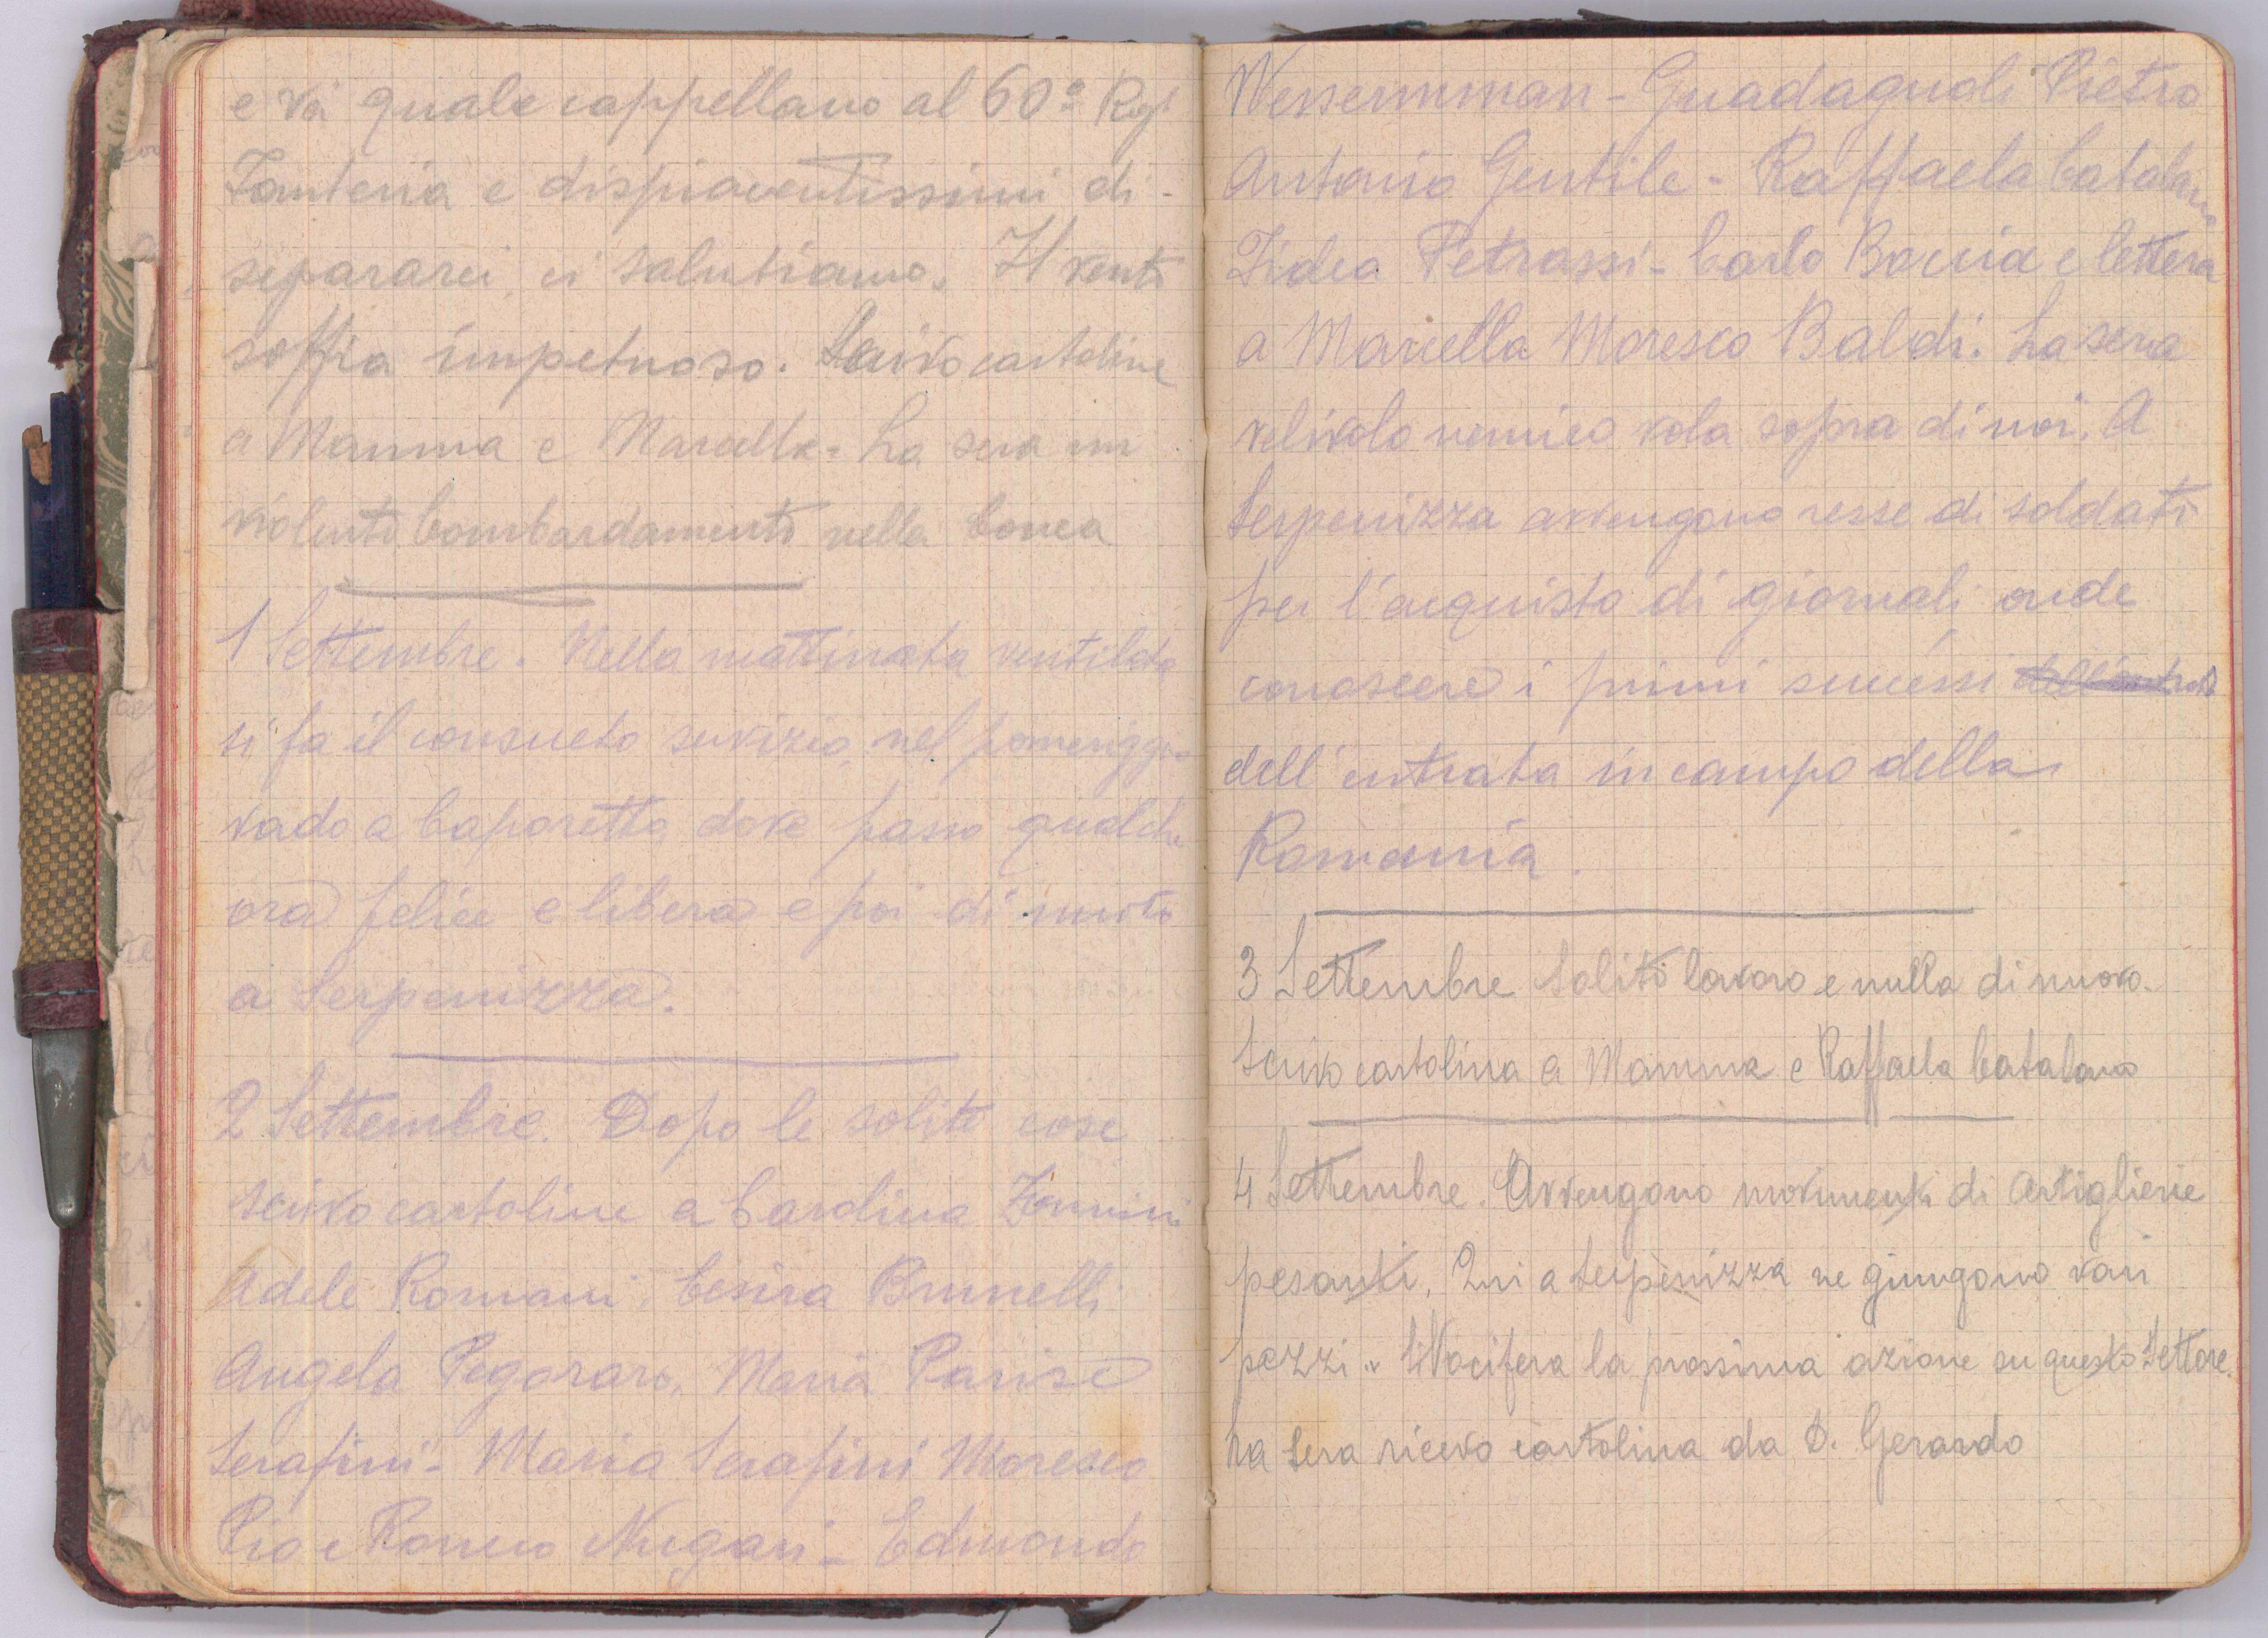 e va quale cappellano al 60º Regt
Fanteria e dispiacentissimi di -
separarci, ci salutiamo. Il vento
soffia impetuoso. Scrivo cartoline
a Mamma e Marcella. La sera un
violento bombardamento nella conca
1 Settembre. Nella mattinata ventilata
si fa il consueto servizio, nel pomeriggio
vado a Caporetto, dove passo qualche
ora felice e libera e poi di nuovo
a Serpenizza.
2 Settembre. Dopo le solite cose
scrivo cartoline a Carolina
Adele Romani, Cesira Brunelli
Angela Pegoraro, Maria Parise
Serafini - Maria Serafini Moresco
Pio e Romeo Nugari - Edmondo
Wessermman - Guadagnoli Pietro
Antonio Gentile - Raffaela Catalano
Fidea Petrassi - Carlo Boccia e lettera
a Marcella Moresco Baldi. La sera
velivolo nemico vola sopra di noi. A
Serpenizza avvengono resse di soldati
per l'acquisto di giornali onde
conoscere i primi successi
dell'entrata in campo della
Romania.
3 Settembre Solito lavoro e nulla di nuovo.
Scrivo cartolina a Mamma e Raffaela Catalano
4 Settembre. Avvengono movimenti di Artiglierie
pesanti. Qui a Serpenizza ne giungono vari
pezzi. Si Vocifera la prossima azione su questo Settore.
La sera ricevo cartolina da D. Gerardo